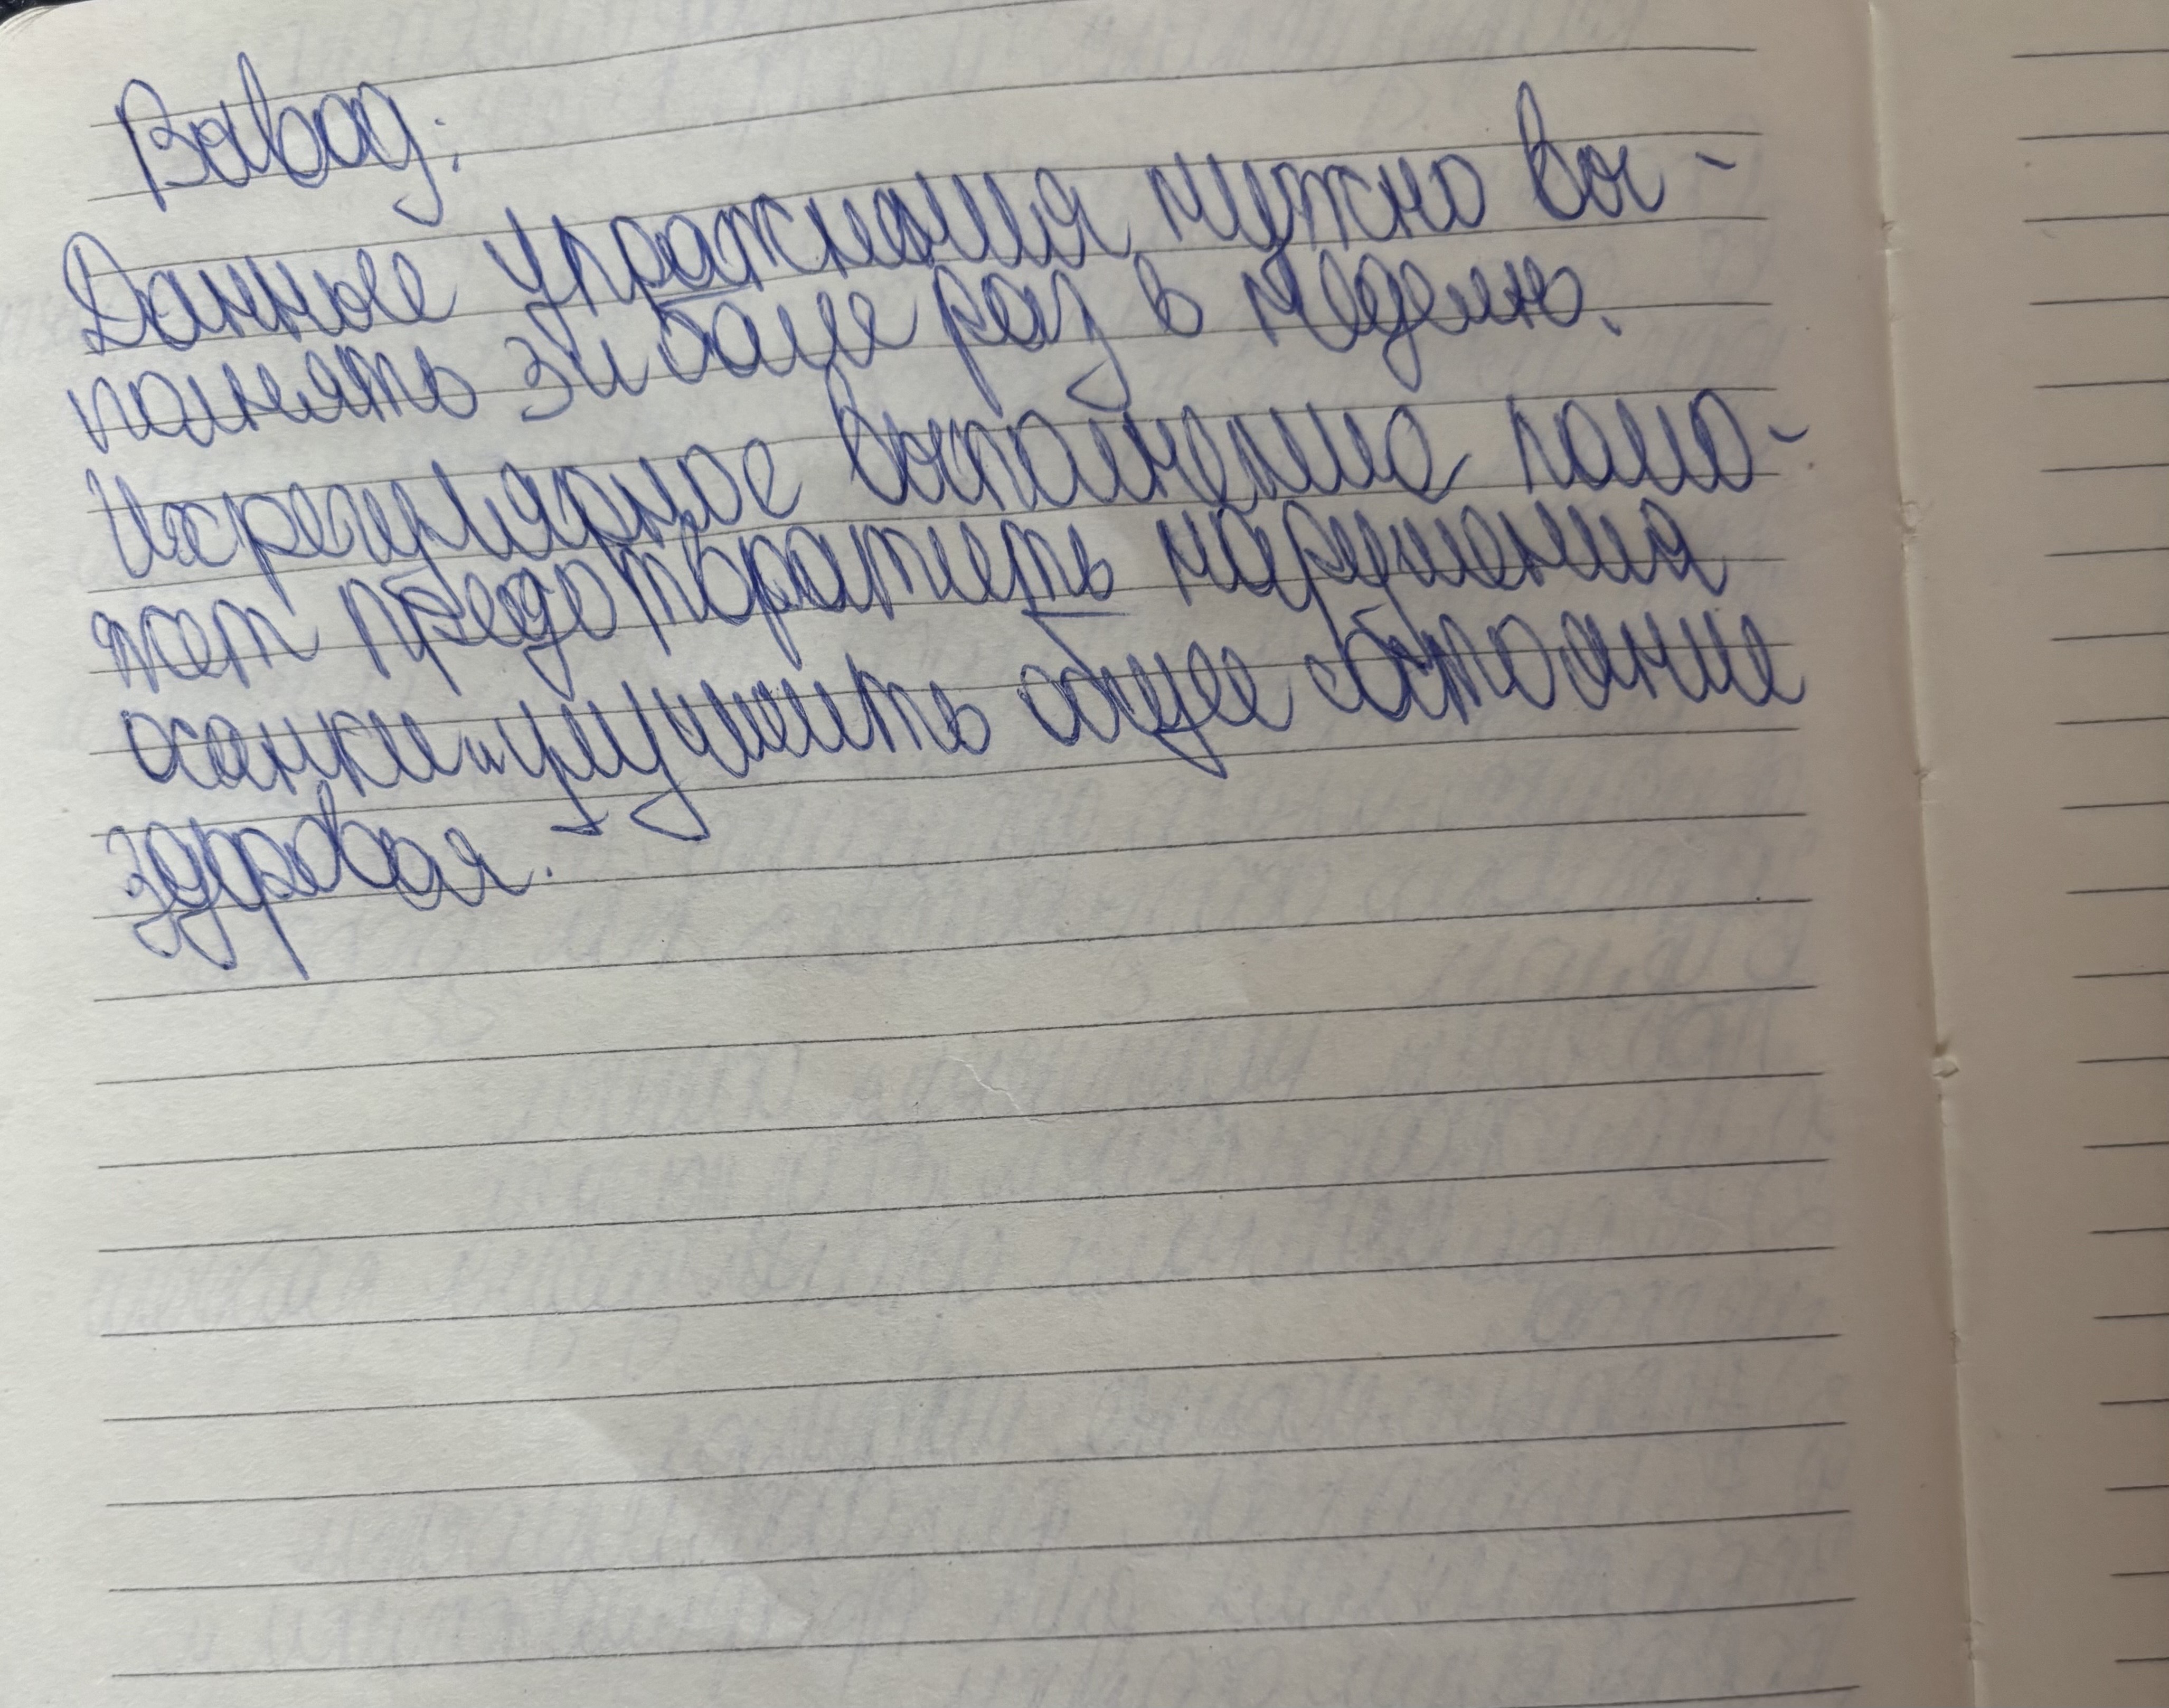 Вывод:
Данные упражнения нужно вы-
полнять 3 и более раз в неделю.
Их регулярное выполнение помо-
жет предотвратить нарушения
осанки и улучшить общее состояние
здоровья.